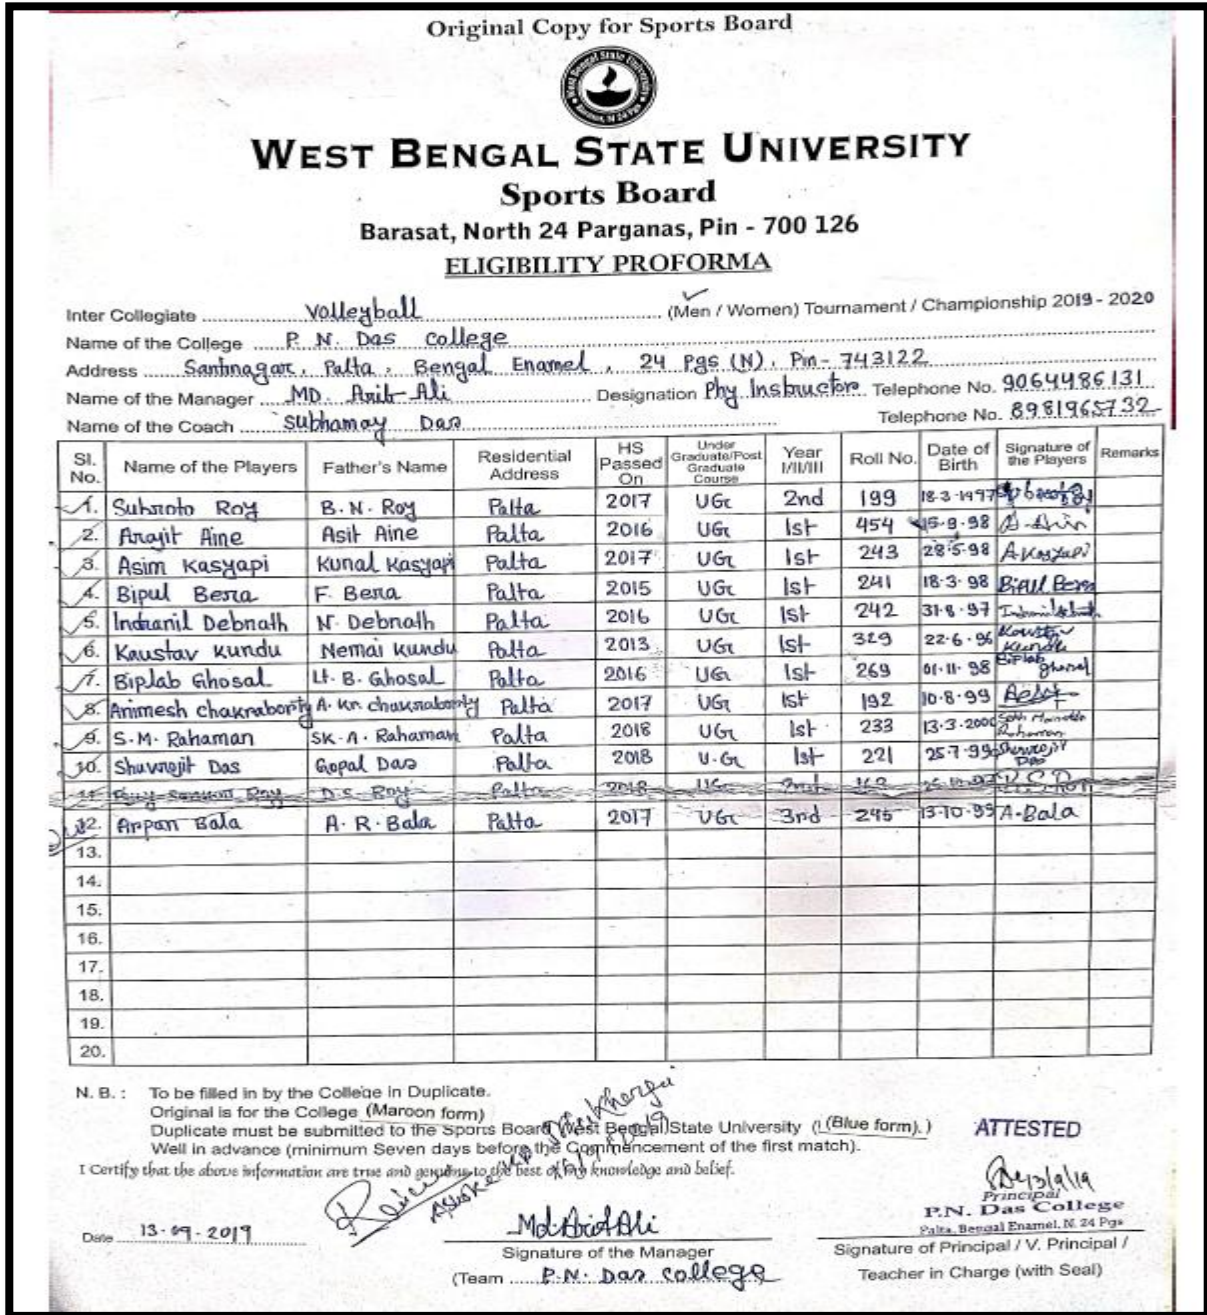 Original Copy for Sports Board
West Bengal State University
Barasat, N 24 Pgs
WEST BENGAL STATE UNIVERSITY
Sports Board
Barasat, North 24 Parganas, Pin - 700 126
ELIGIBILITY PROFORMA
Inter Collegiate Volleyball (Men / Women) Tournament / Championship 2019 - 2020
Name of the College P. N. Das College
Address Santinagar, Palta, Bengal Enamel, 24 Pgs (N). Pin- 743122
Name of the Manager MD. Arib Ali Designation Phy Instructor Telephone No. 9064486131
Name of the Coach Subhamay Das Telephone No. 8981965732
Sl. No. Name of the Players Father's Name Residential Address HS Passed On Under Graduate/Post Graduate Course Year I/II/III Roll No. Date of Birth Signature of the Players Remarks
1. Subroto Roy B. N. Roy Palta 2017 UG 2nd 199 18-3-1997
2. Arajit Aine Asit Aine Palta 2016 UG 1st 454 15-9-98
3. Asim Kasyapi Kunal Kasyapi Palta 2017 UG 1st 243 28-5-98 A. Kasyapi
4. Bipul Bera F. Bera Palta 2015 UG 1st 241 18-3-98 Bipul Bera
5. Indranil Debnath N. Debnath Palta 2016 UG 1st 242 31-8-97
6. Kaustav Kundu Nemai Kundu Palta 2013 UG 1st 329 22-6-96 Koustav Kundu
7. Biplab Ghosal Lt. B. Ghosal Palta 2016 UG 1st 269 01-11-98 Biplab Ghosal
8. Animesh Chakraborty A. Kr. Chakraborty Palta 2017 UG 1st 192 10-8-99
9. S.M. Rahaman SK. A. Rahaman Palta 2018 UG 1st 233 13-3-2000 Rahaman
10. Shuvrojit Das Gopal Das Palta 2018 U.G 1st 221 25-7-99 Shuvrojit Das
11. Roy D.S. Roy Palta 2018 UG
12. Arpan Bala A. R. Bala Palta 2017 UG 3rd 245 13-10-99 A. Bala
13.
14.
15.
16.
17.
18.
19.
20.
N. B. : To be filled in by the College in Duplicate.
Original is for the College (Maroon form)
Duplicate must be submitted to the Sports Board (West Bengal State University (Blue form).)
Well in advance (minimum Seven days before the Commencement of the first match).
I Certify that the above information are true and genuine to the best of my knowledge and belief.
ATTESTED
13/9/19
Principal
P.N. Das College
Palta, Bengal Enamel, N. 24 Pgs
Date 13-09-2019
Md Arif Ali
Signature of the Manager
(Team P.N. Das College
Signature of Principal / V. Principal /
Teacher in Charge (with Seal)